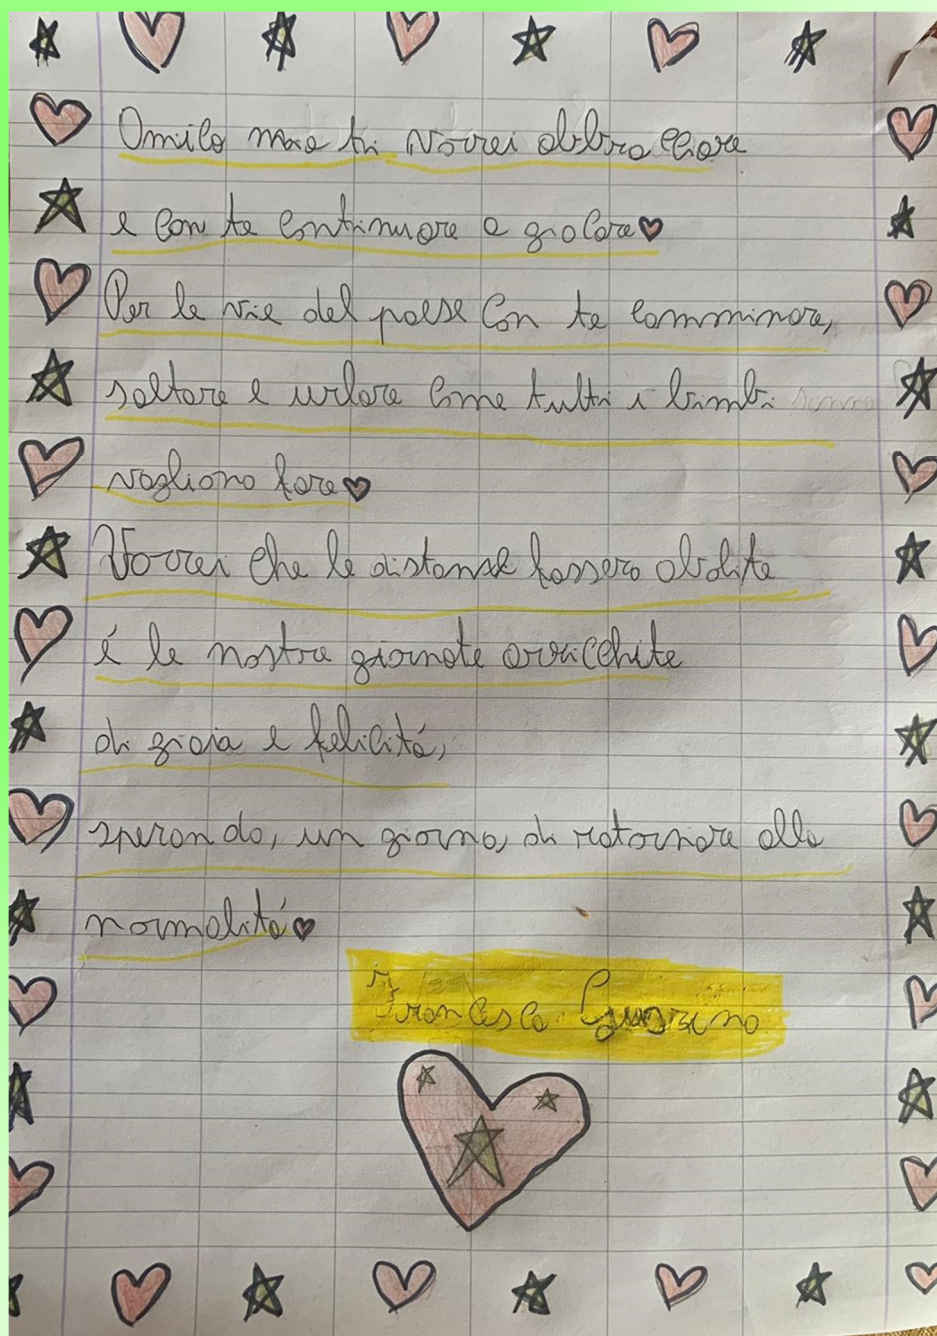 Amico mio ti vorrei abbracciare
e con te continuare a giocare
Per le vie del paese con te camminare,
saltare e urlare come tutti i bimbi
vogliono fare
Vorrei che le distanze fossero abolite
é le nostre giornate arricchite
di gioia e felicitá,
sperando, un giorno, di ritornare alla
normalitá
Francesco Guarino